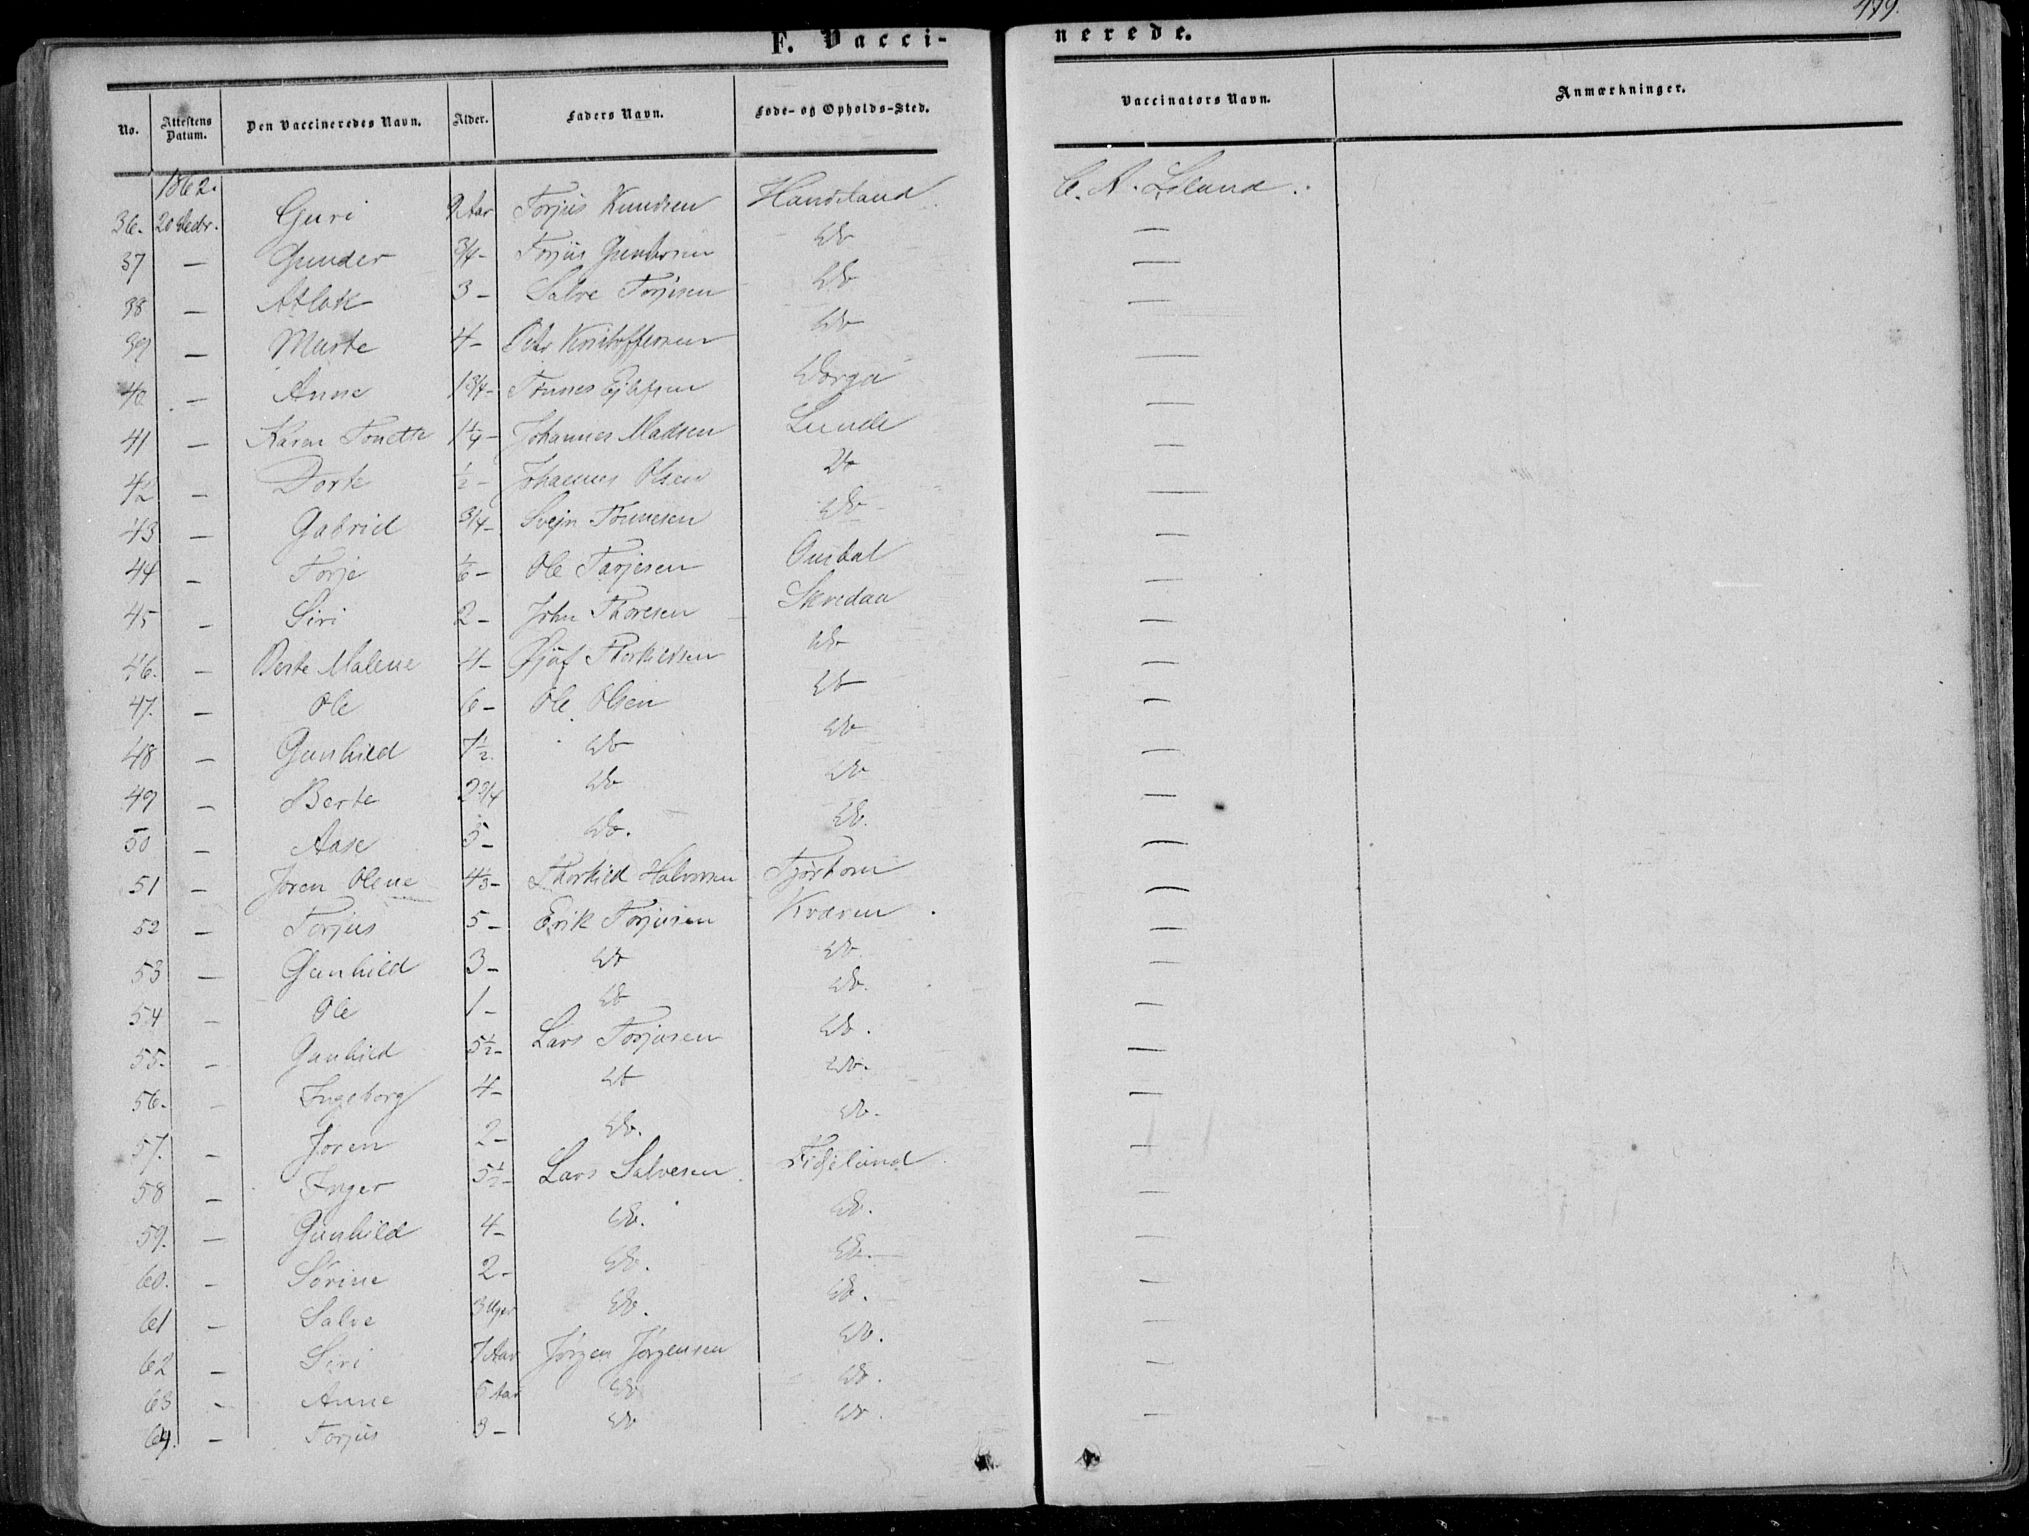 479.
F. Vaccinerede.
No. Attestens Datum. Den Vaccineredes Navn. Alder. Faders Navn. Føde- og Opholds-Sted. Vaccinators Navn. Anmærkninger.
1862.
36. 20 Guri 9 Aar Torjus Knudsen Handeland. Lōland.
37 — Gunder 3/4 - Torjus Gundersen Do —
38 — Atlak 3 - Salve Torjusen Do —
39 — Marte 4 - Peder Kristoffersen Do —
40 — Anne 1 3/4 - Tønnes Dorga —
41 — Karen Tonette 1 1/4 - Johannes Madsen Lunde —
42 — Dorte 1/2 - Johannes Olsen Do —
43 — Gabriel 3/4 - Svejn Tønnesen Do —
44 — Torje 1/6 - Ole Tarjesen Ousdal —
45 — Siri 2 - John Thoresen Skredaa —
46. — Berte Malene 4 - Thorkildsen Do —
47. — Ole 6 - Ole Olsen Do —
48 — Gunhild 7 1/2. Do Do —
49 — Berte 2 3/4 Do Do —
50 — Aase 5 - Do. Do. —
51 — Joren Olene 4 1/3 - Thorkild Halvorsen Tjørhom —
52 — Torjus 5 - Erik Torjusen Kvæven. —
53 — Gunhild 3 - Do Do. —
54 — Ole 1 - Do Do. —
55. — Gunhild 5 1/2 - Lars Torjusen Do. —
56. — Ingeborg 4 - Do Do. —
57. — Joren 2 - Do. Do. —
58 — Inger 5 1/2 - Lars Salvesen Fidjeland. —
59. — Gunhild 4 - Do. Do. —
60. — Sørine 2 - Do. Do. —
61 — Salve 3 Uger Do. Do. —
62 — Siri 7 Aar Jørgen Jørgensen Do. —
63 — Anne 5 Aar Do Do. —
64. — Torjus 3 - Do Do. —